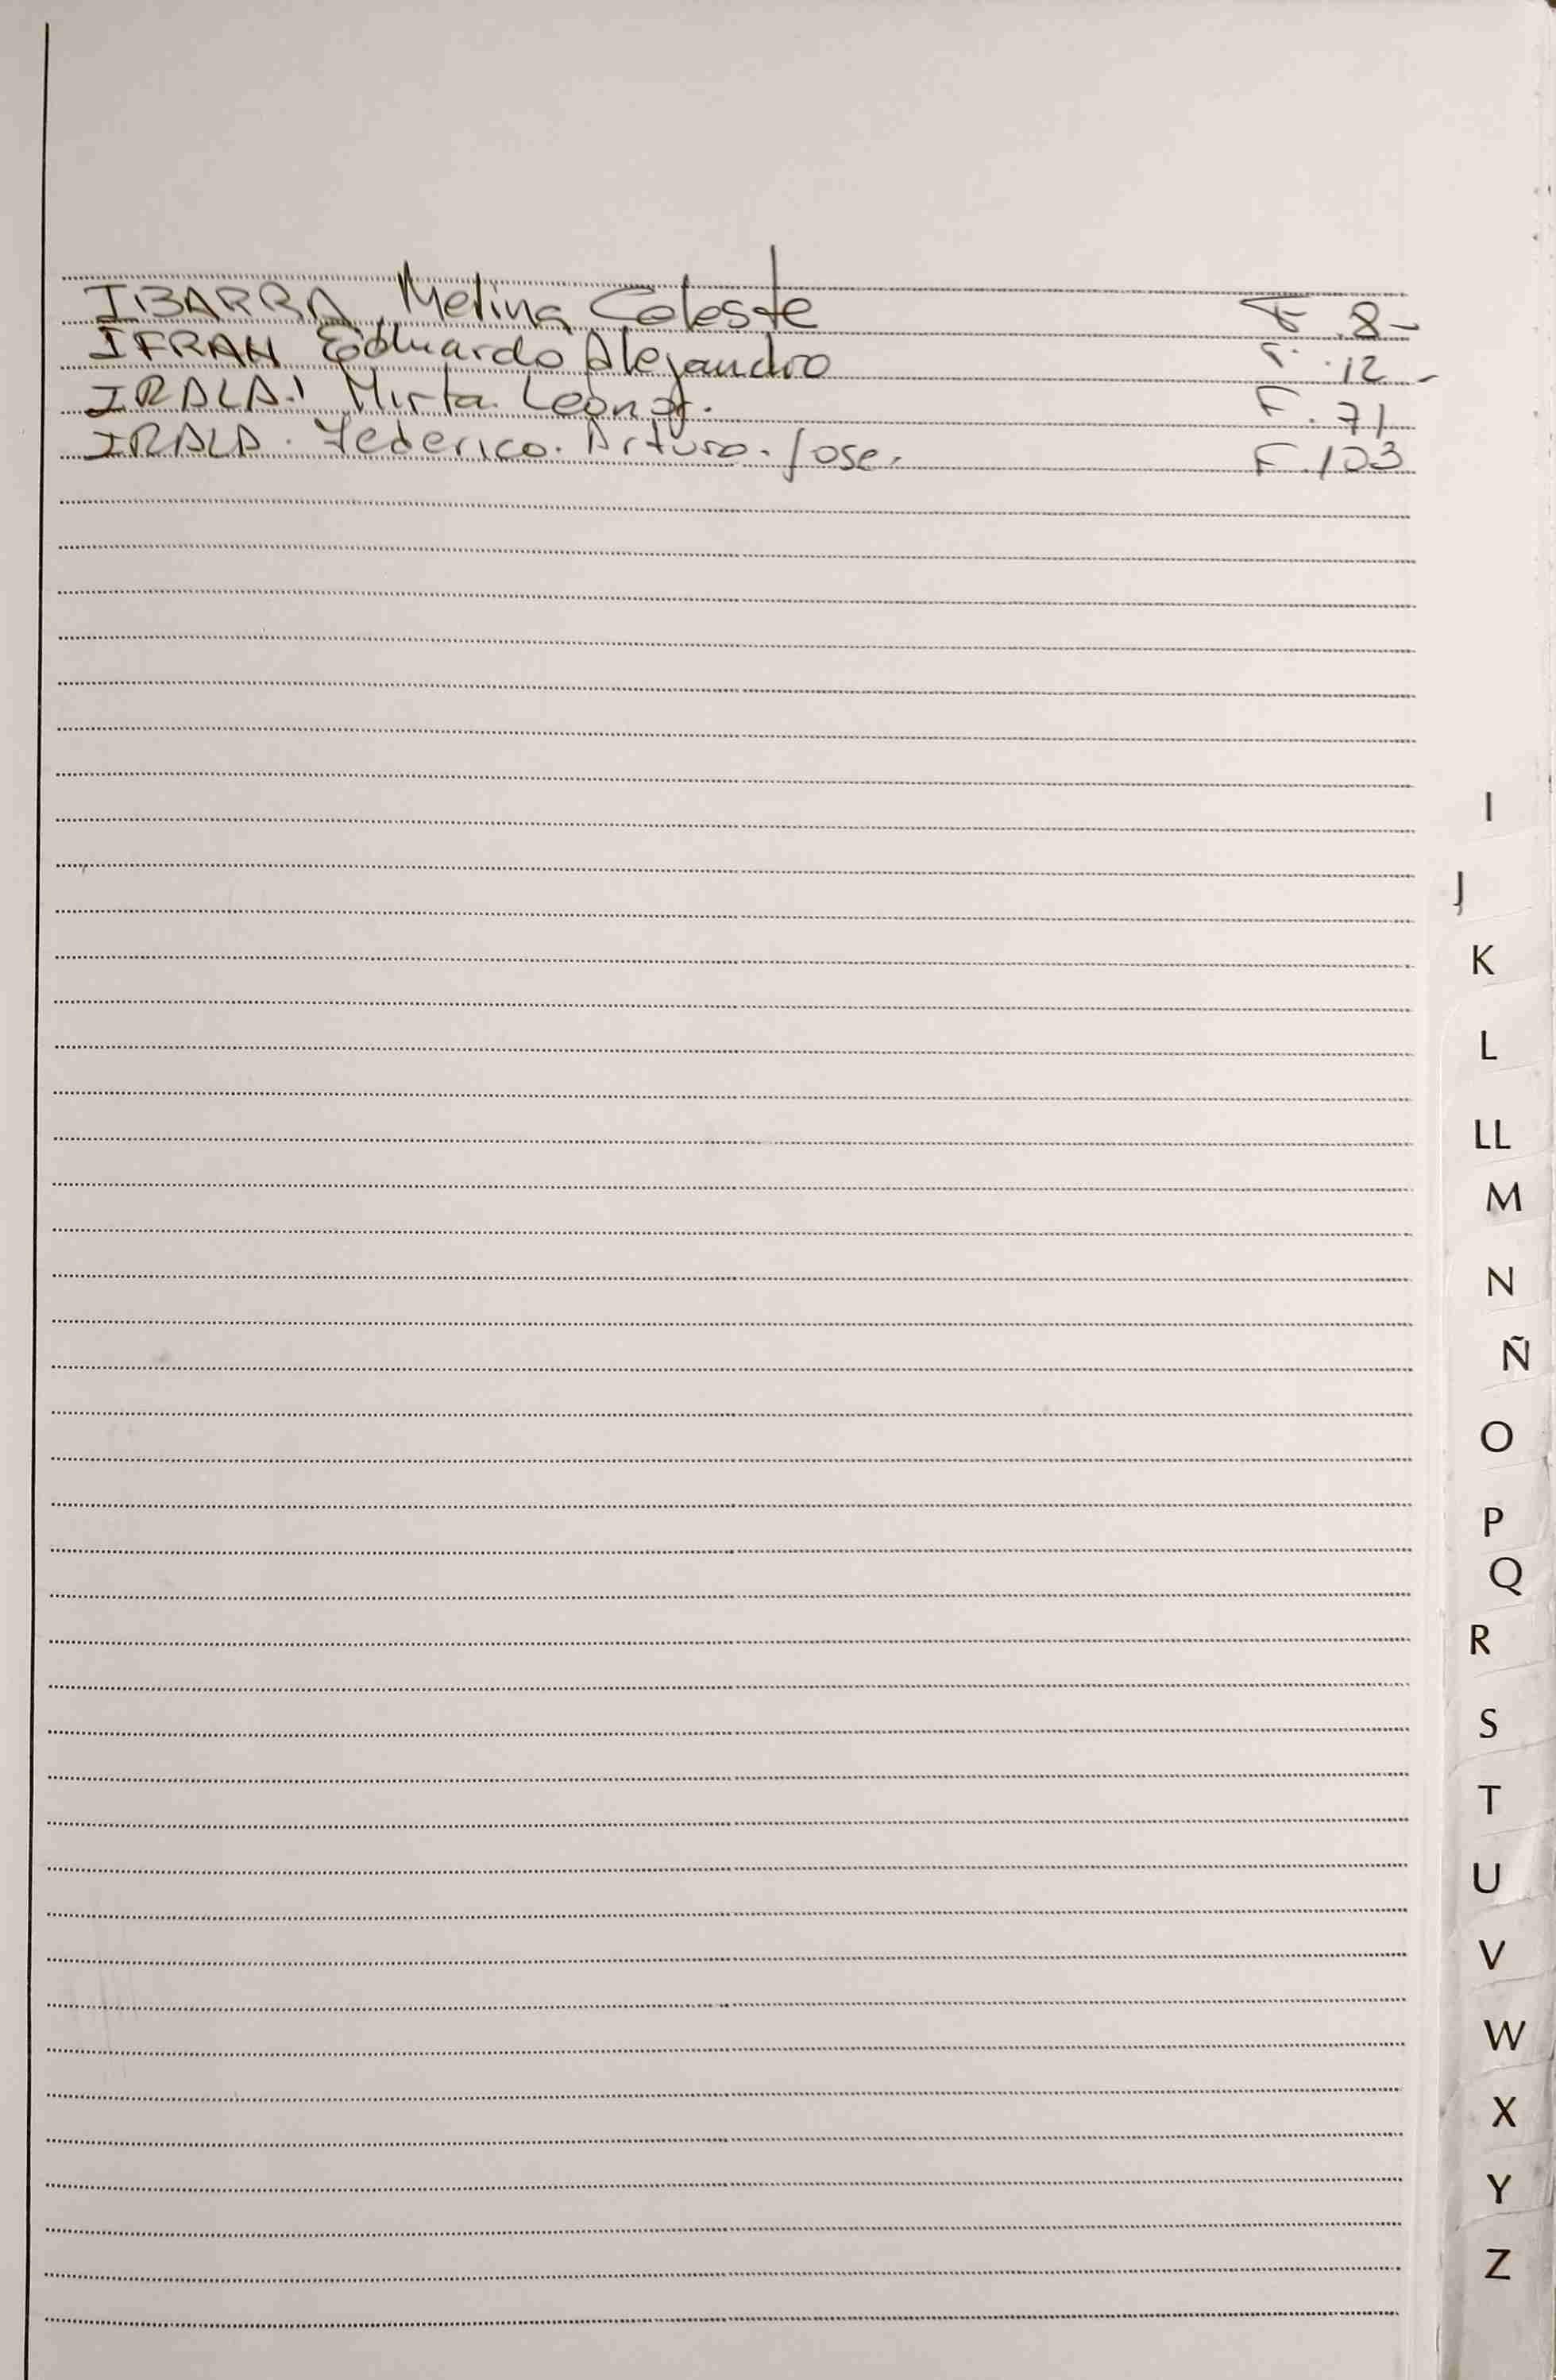 IBARRA, Melina Celeste F. 8-
IFRAN Eduardo Alejandro F. 12-
IRALA. Mirta Leonor. F. 71
IRALA. Federico. Arturo. Jose. F. 103
I
J
K
L
LL
M
N
Ñ
O
P
Q
R
S
T
U
V
W
X
Y
Z